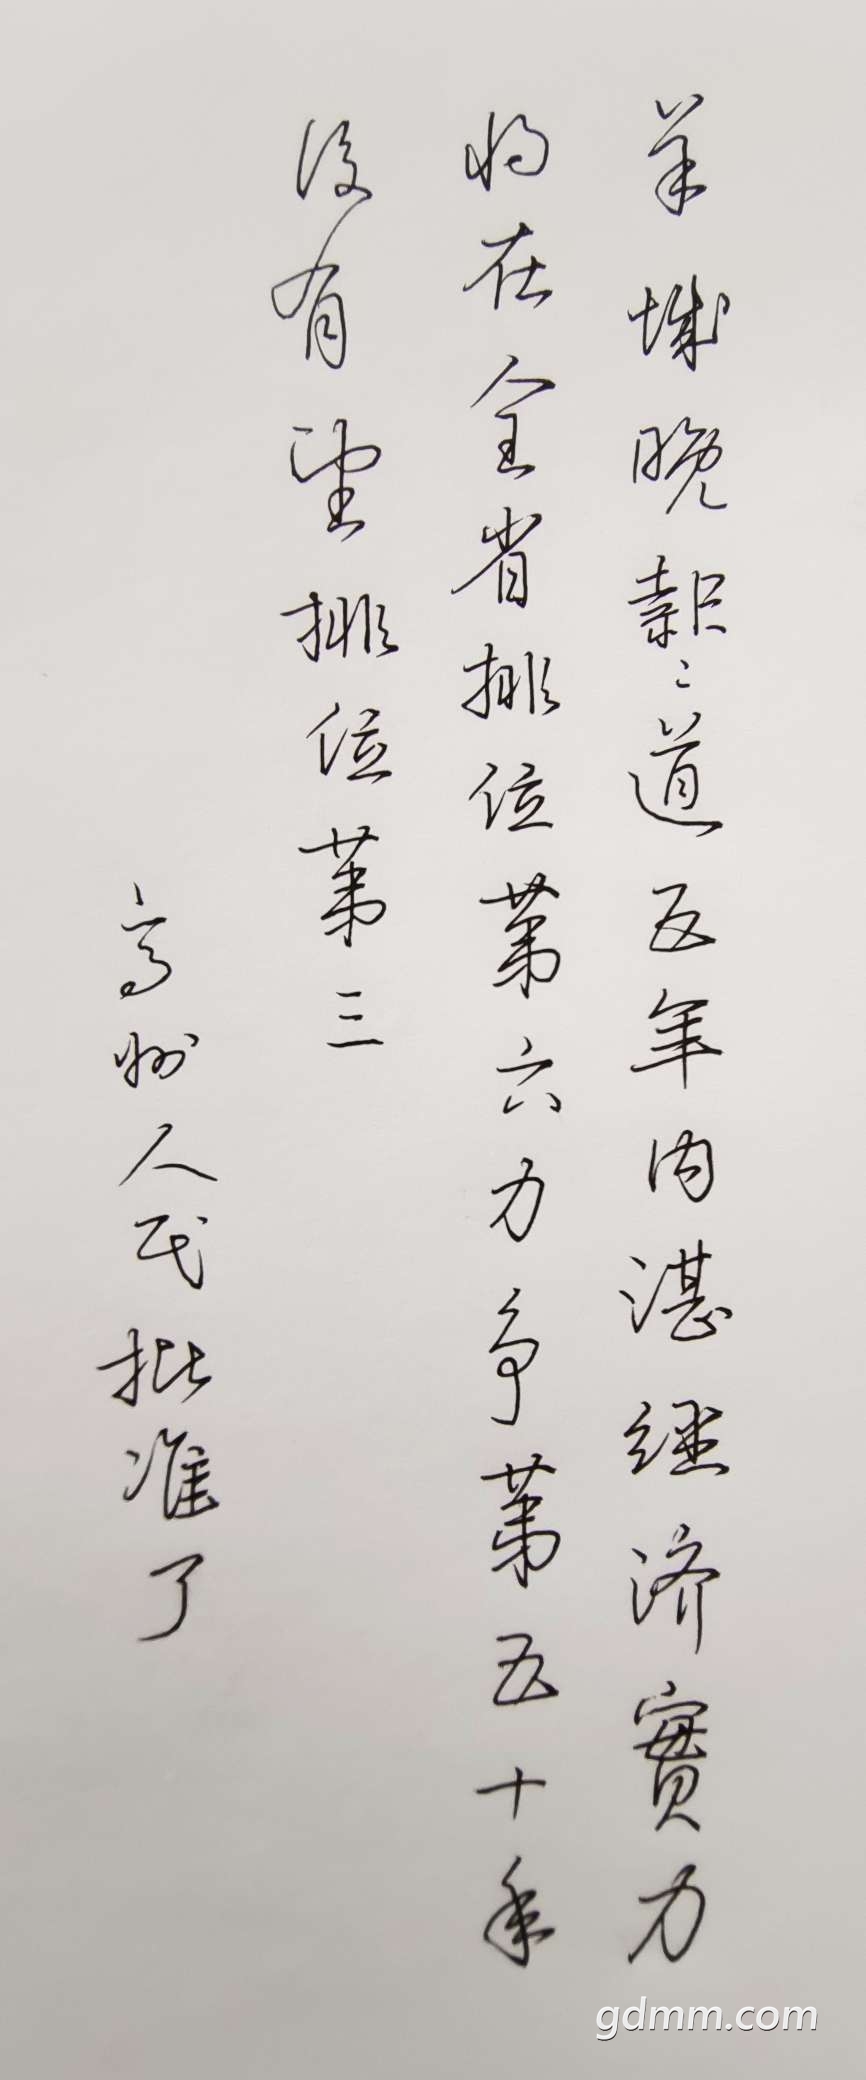 羊城晚報〻道五年内湛經济實力
将在全省排位第六力争第五十年
後有望排位第三
高州人民批准了
gdmm.com